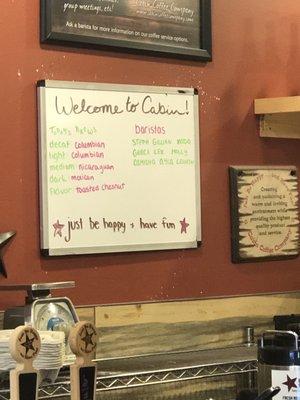 group meetings, etc!
Coffee Company
Ask a barista for more information on our coffee service options.
Welcome to Cabin!
Today's Brews
decaf Colombian
light Columbian
medium nicaraguan
dark mexican
flavor: toasted chestnut
Baristas
STEPH GILLIAN
GRACE LEX MOLLY
just be happy + have fun
Creating
and sustaining
a warm and
inviting
environment while
providing the
highest quality
product and
service.
Coffee Company